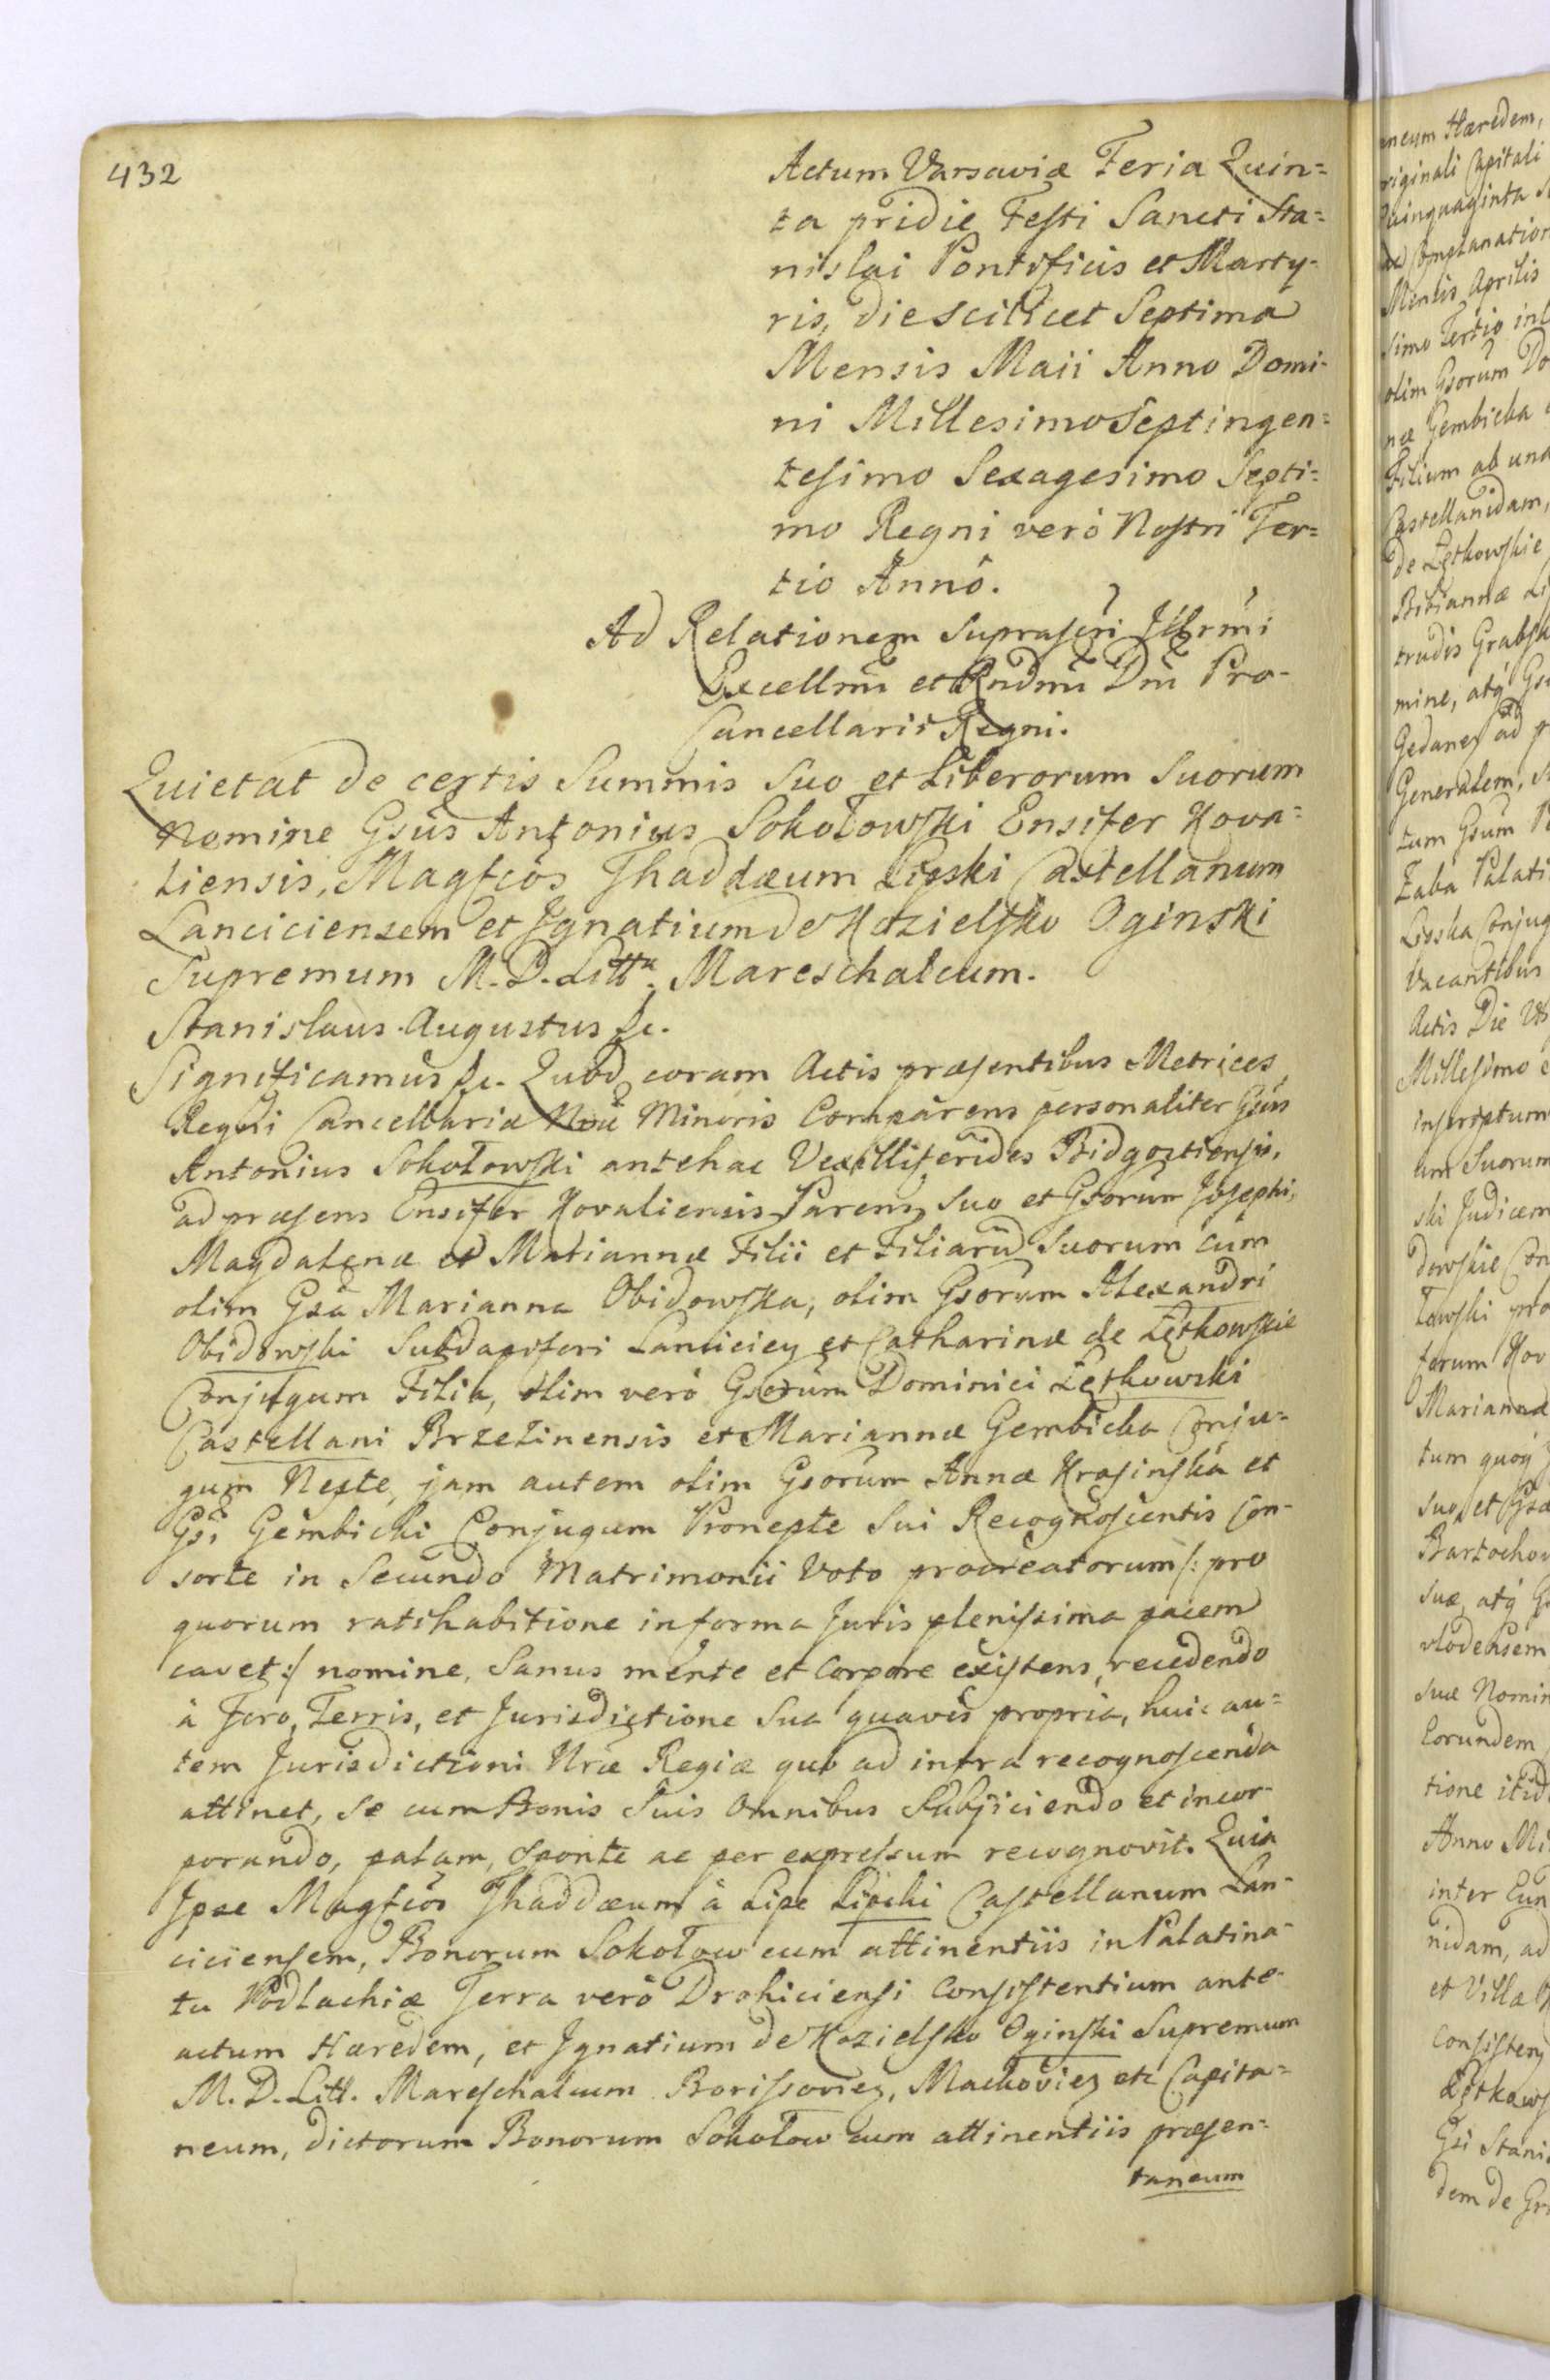 432
Actum Varsaviæ Feria Quin=
ta pridie Festi Sancti Sta=
nislai Pontificis et Marty-
ris, die scilicet Septima
Mensis Maii Anno Domi-
ni Millesimo Septingen=
tesimo Sexagesimo Septi=
mo Regni verò Nostri Ter=
tio Annô.
Ad Relationem suprascri Illrmi
Excellmi et Rndmi Dni Pro-
Cancellarii Regni.
Quietat de certis Summis Suo et Liberorum Suorum
Nomine Gsus Antonius Sokołowski Ensifer Kova=
liensis, Magfcos Thaddæum Lipski Castellanum
Lanciciensem et Ignatium de Kozielsko Oginski
Supremum M. D. Litt. Mareschalcum.
Stanislaus Augustus &c.
Significamus &c. Quod coram Actis præsentibus Metrices
Regni Cancellariæ Minoris Comparens personaliter Gsus
Antonius Sokołowski antehac Vexilliferides Bidgostiensis,
ad præsens Ensifer Kovaliensis Parens, suo et Gsorum Josephi,
Magdalenæ et Mariannæ Filii et Filiarū Suorum cum
olim Gsa Marianna Obidowska, olim Gsorum Alexandri
Obidowski Subdapiferi Lanicicien et Catharinæ de Łętkowskie
Conjugum Filia, olim verò Gsorum Dominici Łętkowski
Castellani Brzezinensis et Mariannæ Gembicka Conju=
gum Nepte, jam autem olim Gsorum Annæ Krasinska et
Gsi Gembicki Conjugum Pronepte Sui Recognoscentis Con-
sorte in Secundo Matrimonii Voto procreatorum /: pro
quorum ratihabitione in forma Juris plenissima pacem
cavet :/ nomine, Sanus mente et corpore existens, recedendo
à Foro, Terris, et Jurisdictione Sua quavis propria, huic au=
tem Jurisdictioni Nræ Regiæ quo ad infra recognoscenda
attinet, se cum Bonis Suis Omnibus Subjiciendo et incor-
porando, palam, sponte ac per expressum recognovit. Quia
Ipse Magfcos Thaddæum à Lipe Lipski Castellanum Lan-
ciciensem, Bonorum Sokołow cum attinentiis in Palatina-
tu Podlachiæ Terra verò Drohiciensi Consistentium ante-
actum Hæredem, et Ignatium de Kozielsko Oginski Supremum
M. D. Litt. Mareschalcum Borissovien, Mackovien etc Capita=
neum, dictorum Bonorum Sokołow cum attinentiis præsen=
taneum
neum Hæredem,
riginali Capitali
quinquaginta
Complanation
Mensis Aprilis
simo Tertio
olim Gsorum Do
næ Gembicka
Filium ab una
Castellanidam,
de Łętkowskie
Bibiannæ
trudis Grabsk
mine, atq
Gedanen ad
Generalem,
tum Gsum
Żaba Palati
Lipska Conjug
Vacantibus
Actis Die
Millesimo
inscriptum
um Suorum
ski Judicem
dowskie Con
towski pro
ferum Kov
Mariannæ
tum quoq
suo, et Gsæ
Bartochow
suæ, atq
vlodensem
suæ Nomin
Eorundem
tione itid
Anno Mi
inter Eun
nidam, ad
et Villa
Consisten
Łętkows
Gsi Stani
dem de Gr